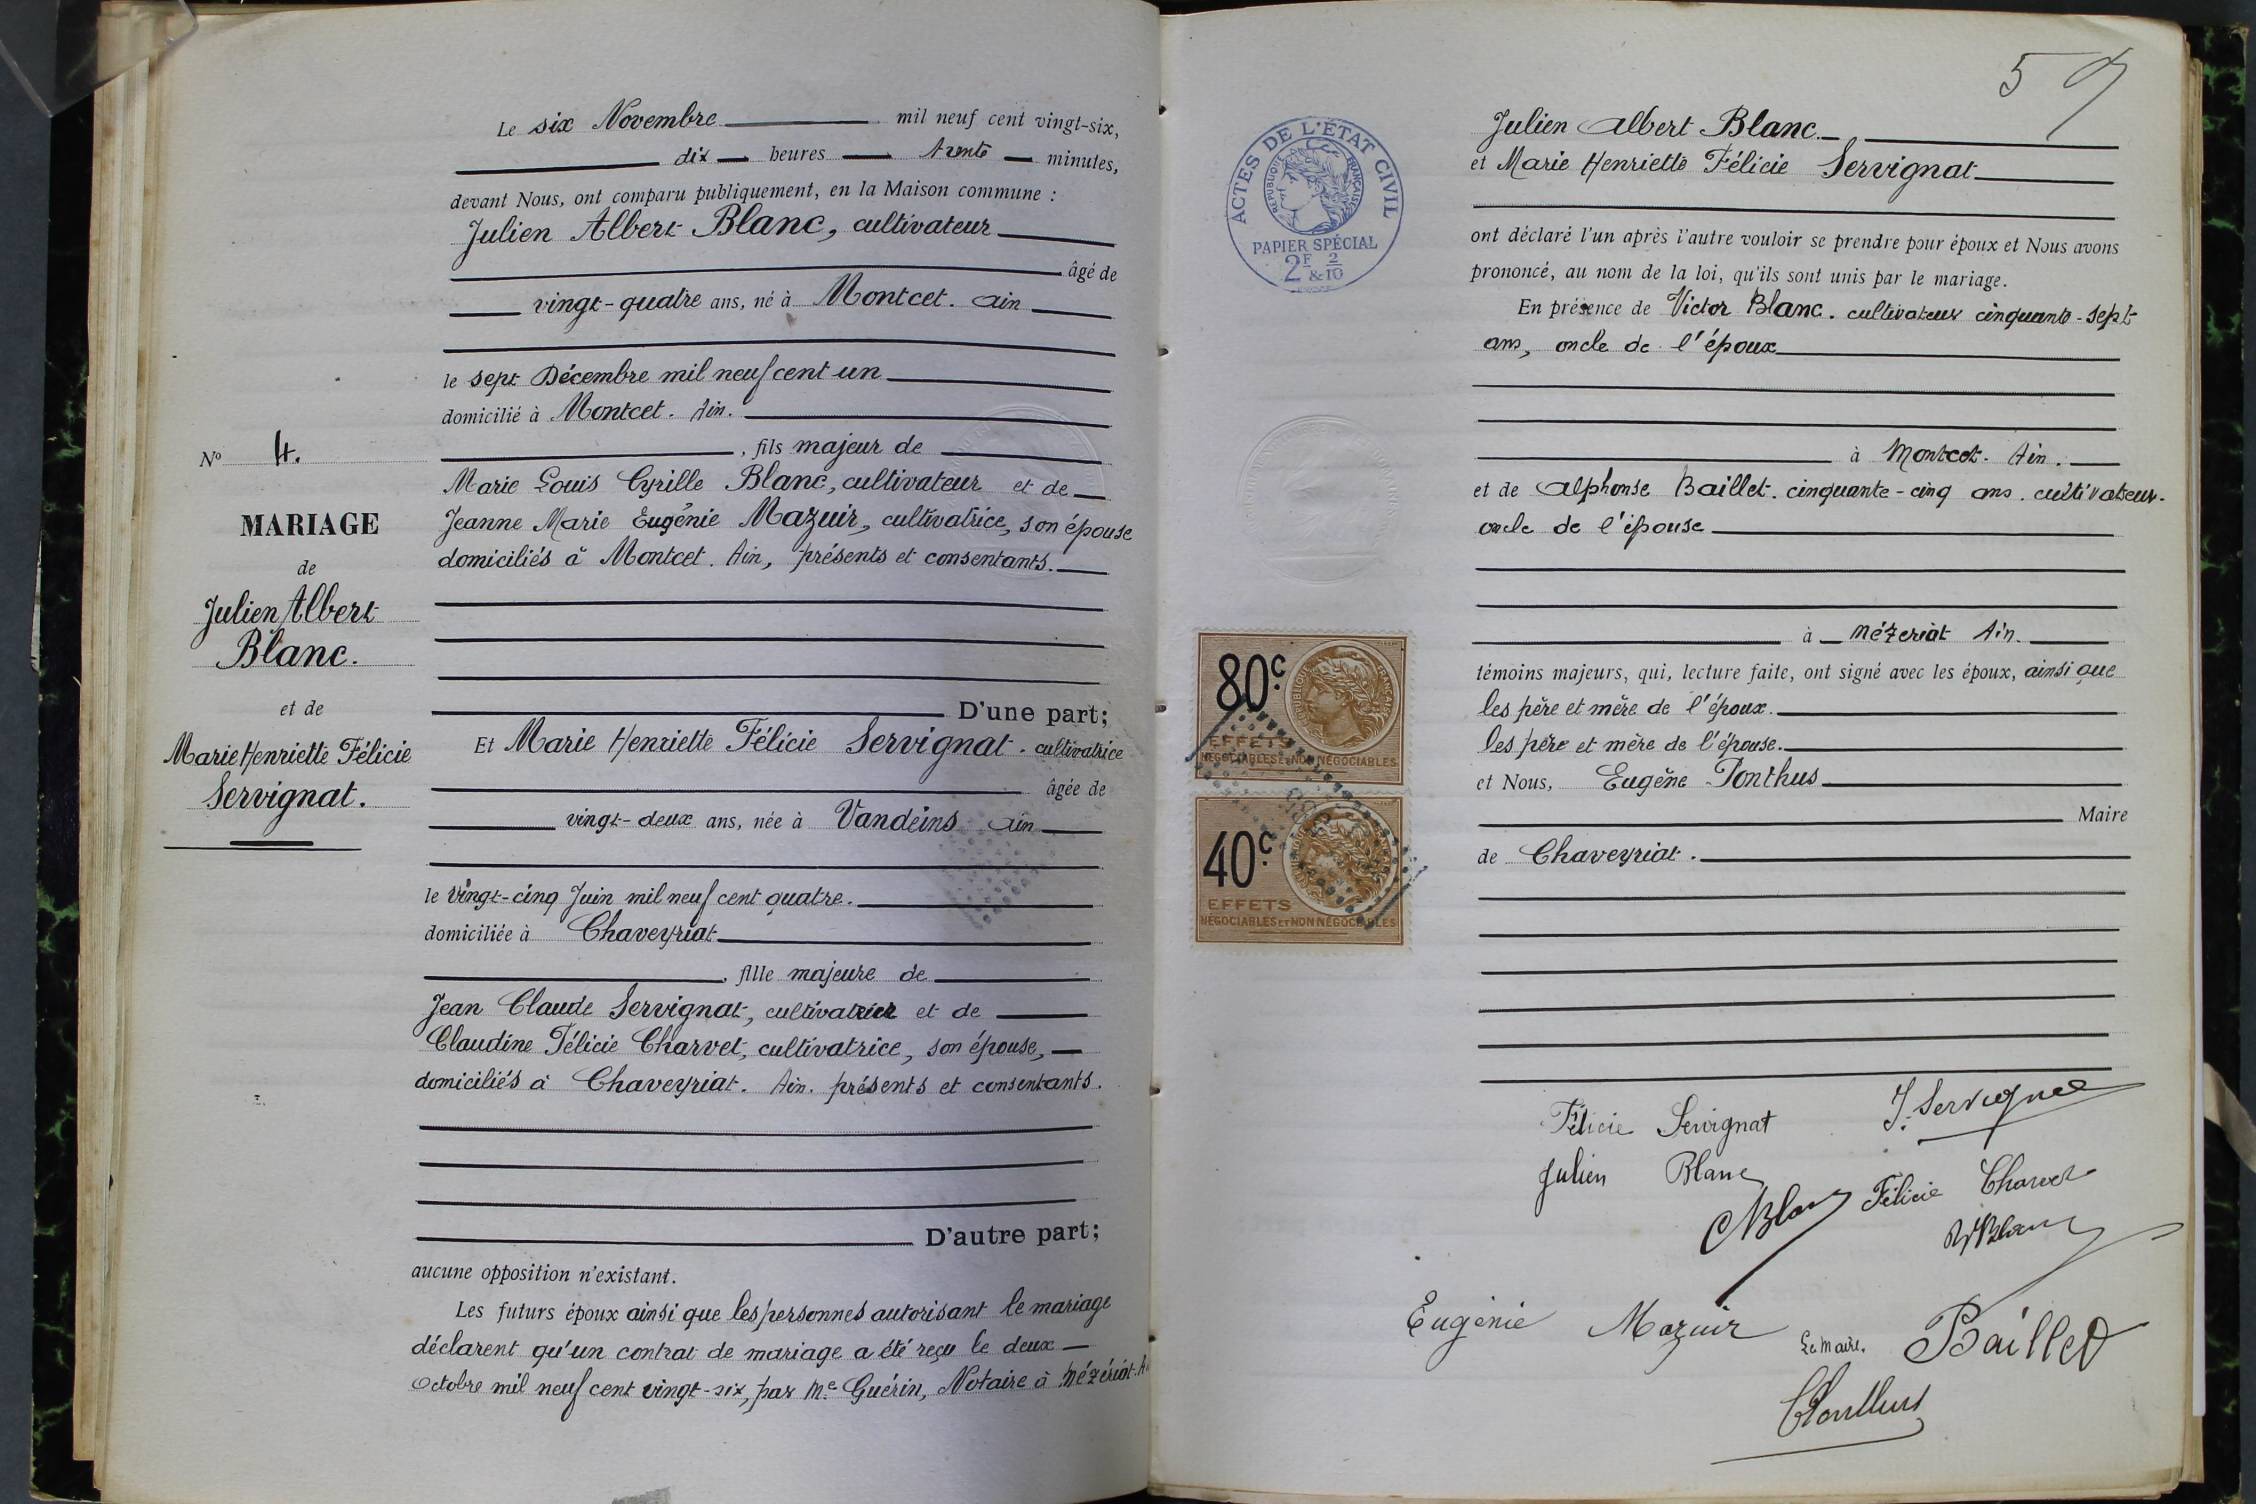 Le six Novembre mil neuf cent vingt-six,
dix heures trente minutes,
devant Nous, ont comparu publiquement, en la Maison commune :
Julien Albert Blanc, cultivateur
âgé de
vingt-quatre ans, né à Montcet. Ain
le sept Décembre mil neuf cent un
domicilié à Montcet. Ain.
, fils majeur de
Marie Louis Cyrille Blanc, cultivateur et de
Jeanne Marie Eugénie Mazuir, cultivatrice, son épouse
domiciliés à Montcet. Ain, présents et consentants.
D'une part;
Nº 4.
MARIAGE
de
Julien Albert
Blanc.
et de
Marie Henriette Félicie
Servignat.
Et Marie Henriette Félicie Servignat. cultivatrice
âgée de
vingt-deux ans, née à Vandeins Ain
le vingt-cinq Juin mil neuf cent quatre.
domiciliée à Chaveyriat
, fille majeure de
Jean Claude Servignat, cultivateur et de
Claudine Félicie Charvet, cultivatrice, son épouse,
domiciliés à Chaveyriat. Ain. présents et consentants.
D'autre part;
aucune opposition n'existant.
Les futurs époux ainsi que les personnes autorisant le mariage
déclarent qu'un contrat de mariage a été reçu le deux
Octobre mil neuf cent vingt-six, par Me Guérin, Notaire à Mézériat.
5
ACTES DE L'ÉTAT CIVIL
RÉPUBLIQUE FRANÇAISE
PAPIER SPÉCIAL
2F & 2/10
80c
EFFETS
NÉGOCIABLES ET NON NÉGOCIABLES
40c
EFFETS
NÉGOCIABLES ET NON NÉGOCIABLES
Julien Albert Blanc.
et Marie Henriette Félicie Servignat
ont déclaré l'un après l'autre vouloir se prendre pour époux et Nous avons
prononcé, au nom de la loi, qu'ils sont unis par le mariage.
En présence de Victor Blanc. cultivateur cinquante-sept
ans, oncle de l'époux
à Montcet. Ain.
et de Alphonse Baillet. cinquante-cinq ans. cultivateur.
oncle de l'épouse
à Mézeriat Ain.
témoins majeurs, qui, lecture faite, ont signé avec les époux, ainsi que
les père et mère de l'époux.
les père et mère de l'épouse.
et Nous, Eugène Ponthus
Maire
de Chaveyriat.
Félicie Servignat J. Servignat
Julien Blanc
C Blanc Félicie Charvet
V Blanc
Eugénie Mazuir Le Maire. Baillet